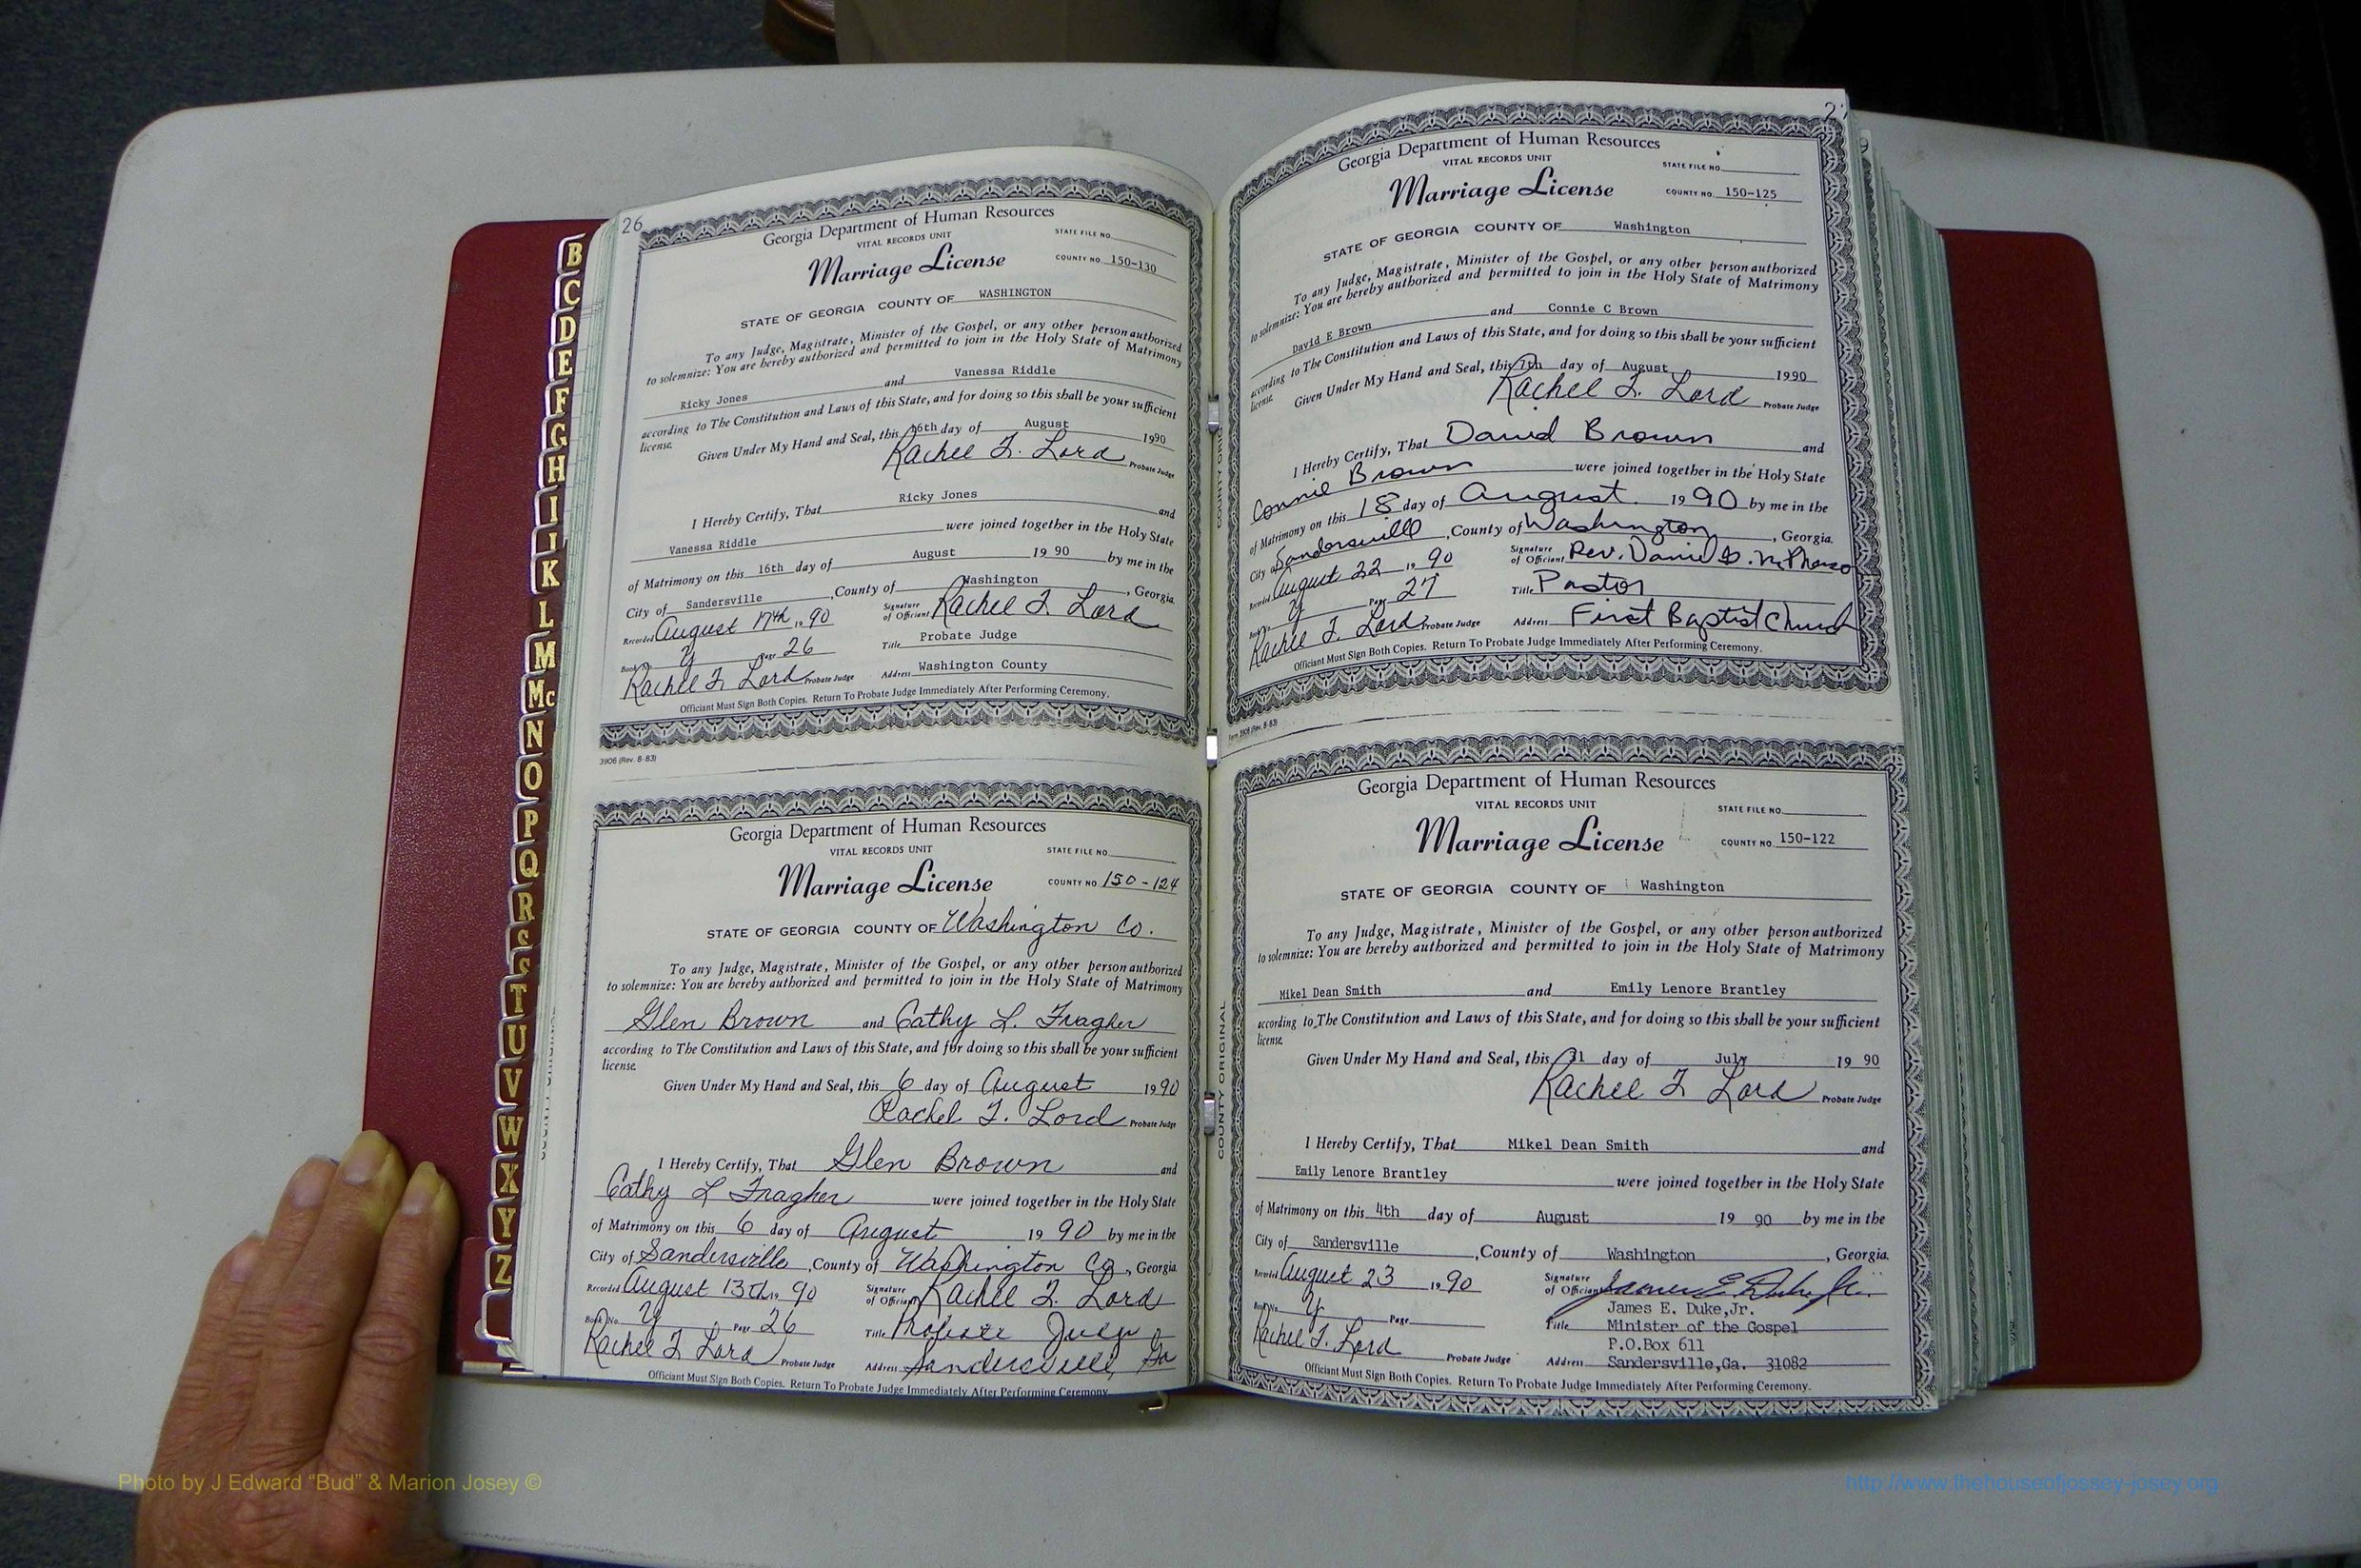 26
Georgia Department of Human Resources
VITAL RECORDS UNIT
STATE FILE NO.
Marriage License
COUNTY NO. 150-130
STATE OF GEORGIA COUNTY OF WASHINGTON
To any Judge, Magistrate, Minister of the Gospel, or any other person authorized
to solemnize: You are hereby authorized and permitted to join in the Holy State of Matrimony
Ricky Jones and Vanessa Riddle
according to The Constitution and Laws of this State, and for doing so this shall be your sufficient
license.
Given Under My Hand and Seal, this 16th day of August 1990
Rachel F. Lord Probate Judge
I Hereby Certify, That Ricky Jones and
Vanessa Riddle were joined together in the Holy State
of Matrimony on this 16th day of August 19 90 by me in the
City of Sandersville, County of Washington, Georgia.
Recorded August 17th, 1990 Signature of Official Rachel F. Lord
Book No. Y Page 26 Title Probate Judge
Rachel F. Lord Probate Judge Address Washington County
Officiant Must Sign Both Copies. Return To Probate Judge Immediately After Performing Ceremony.
3906 (Rev. 8-83)
Georgia Department of Human Resources
VITAL RECORDS UNIT
STATE FILE NO.
Marriage License
COUNTY NO. 150-124
STATE OF GEORGIA COUNTY OF Washington Co.
To any Judge, Magistrate, Minister of the Gospel, or any other person authorized
to solemnize: You are hereby authorized and permitted to join in the Holy State of Matrimony
Glen Brown and Cathy L. Fragher
according to The Constitution and Laws of this State, and for doing so this shall be your sufficient
license.
Given Under My Hand and Seal, this 6 day of August 1990
Rachel F. Lord Probate Judge
I Hereby Certify, That Glen Brown and
Cathy L Fragher were joined together in the Holy State
of Matrimony on this 6 day of August 19 90 by me in the
City of Sandersville, County of Washington Co, Georgia
Recorded August 13th, 1990 Signature of Official Rachel F. Lord
Book No. Y Page 26 Title Probate Judge
Rachel F Lord Probate Judge Address Sandersville, Ga
Officiant Must Sign Both Copies. Return To Probate Judge Immediately After Performing Ceremony
Georgia Department of Human Resources
VITAL RECORDS UNIT
STATE FILE NO.
Marriage License
COUNTY NO. 150-125
STATE OF GEORGIA COUNTY OF Washington
To any Judge, Magistrate, Minister of the Gospel, or any other person authorized
to solemnize: You are hereby authorized and permitted to join in the Holy State of Matrimony
David E Brown and Connie C Brown
according to The Constitution and Laws of this State, and for doing so this shall be your sufficient
license.
Given Under My Hand and Seal, this 7th day of August 1990
Rachel F. Lord Probate Judge
I Hereby Certify, That David Brown and
Connie Brown were joined together in the Holy State
of Matrimony on this 18 day of August 1990 by me in the
City of Sandersville, County of Washington, Georgia.
Recorded August 22 1990 Signature of Official Rev. Daniel
Book No. Y Page 27 Title Pastor
Rachel F. Lord Probate Judge Address First Baptist Church
Officiant Must Sign Both Copies. Return To Probate Judge Immediately After Performing Ceremony.
Form 3906 (Rev. 8-83)
COUNTY ORIGINAL
Georgia Department of Human Resources
VITAL RECORDS UNIT
STATE FILE NO.
Marriage License
COUNTY NO. 150-122
STATE OF GEORGIA COUNTY OF Washington
To any Judge, Magistrate, Minister of the Gospel, or any other person authorized
to solemnize: You are hereby authorized and permitted to join in the Holy State of Matrimony
Mikel Dean Smith and Emily Lenore Brantley
according to The Constitution and Laws of this State, and for doing so this shall be your sufficient
license.
Given Under My Hand and Seal, this 31 day of July 19 90
Rachel F Lord Probate Judge
I Hereby Certify, That Mikel Dean Smith and
Emily Lenore Brantley were joined together in the Holy State
of Matrimony on this 4th day of August 19 90 by me in the
City of Sandersville, County of Washington, Georgia.
Recorded August 23 1990 Signature of Official James E. Duke, Jr.
James E. Duke,Jr.
Book No. Y Page Title Minister of the Gospel
P.O.Box 611
Rachel F. Lord Probate Judge Address Sandersville,Ga. 31082
Officiant Must Sign Both Copies. Return To Probate Judge Immediately After Performing Ceremony.
COUNTY ORIGINAL
B
C
D
E
F
G
H
I
J
K
L
M
Mc
N
O
P
Q
R
S
S
T
U
V
W
X
Y
Z
Photo by J Edward “Bud” & Marion Josey ©
http://www.thehouseofjossey-josey.org